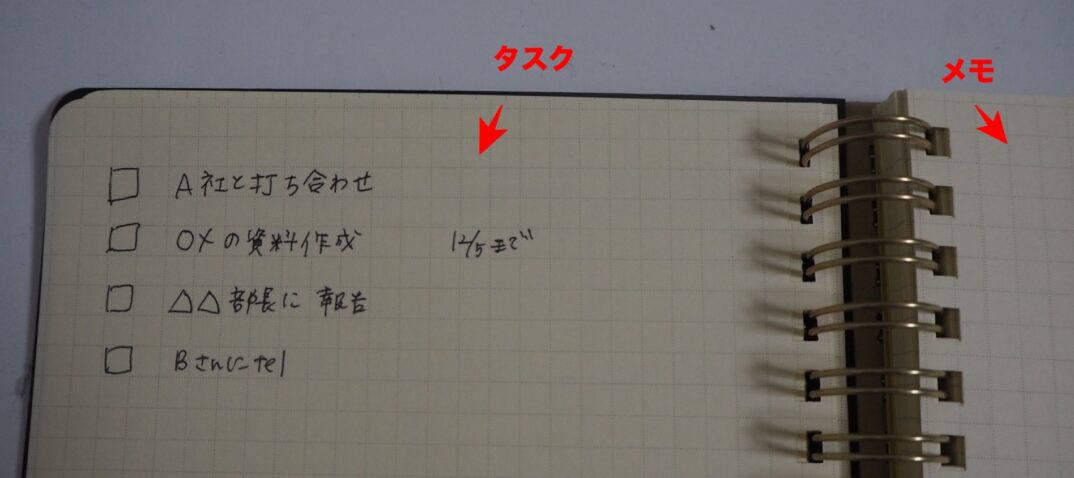 タスク
メモ
□ A社と打ち合わせ
□ ○×の資料作成 12/5まで
□ △△部長に報告
□ Bさんにtel